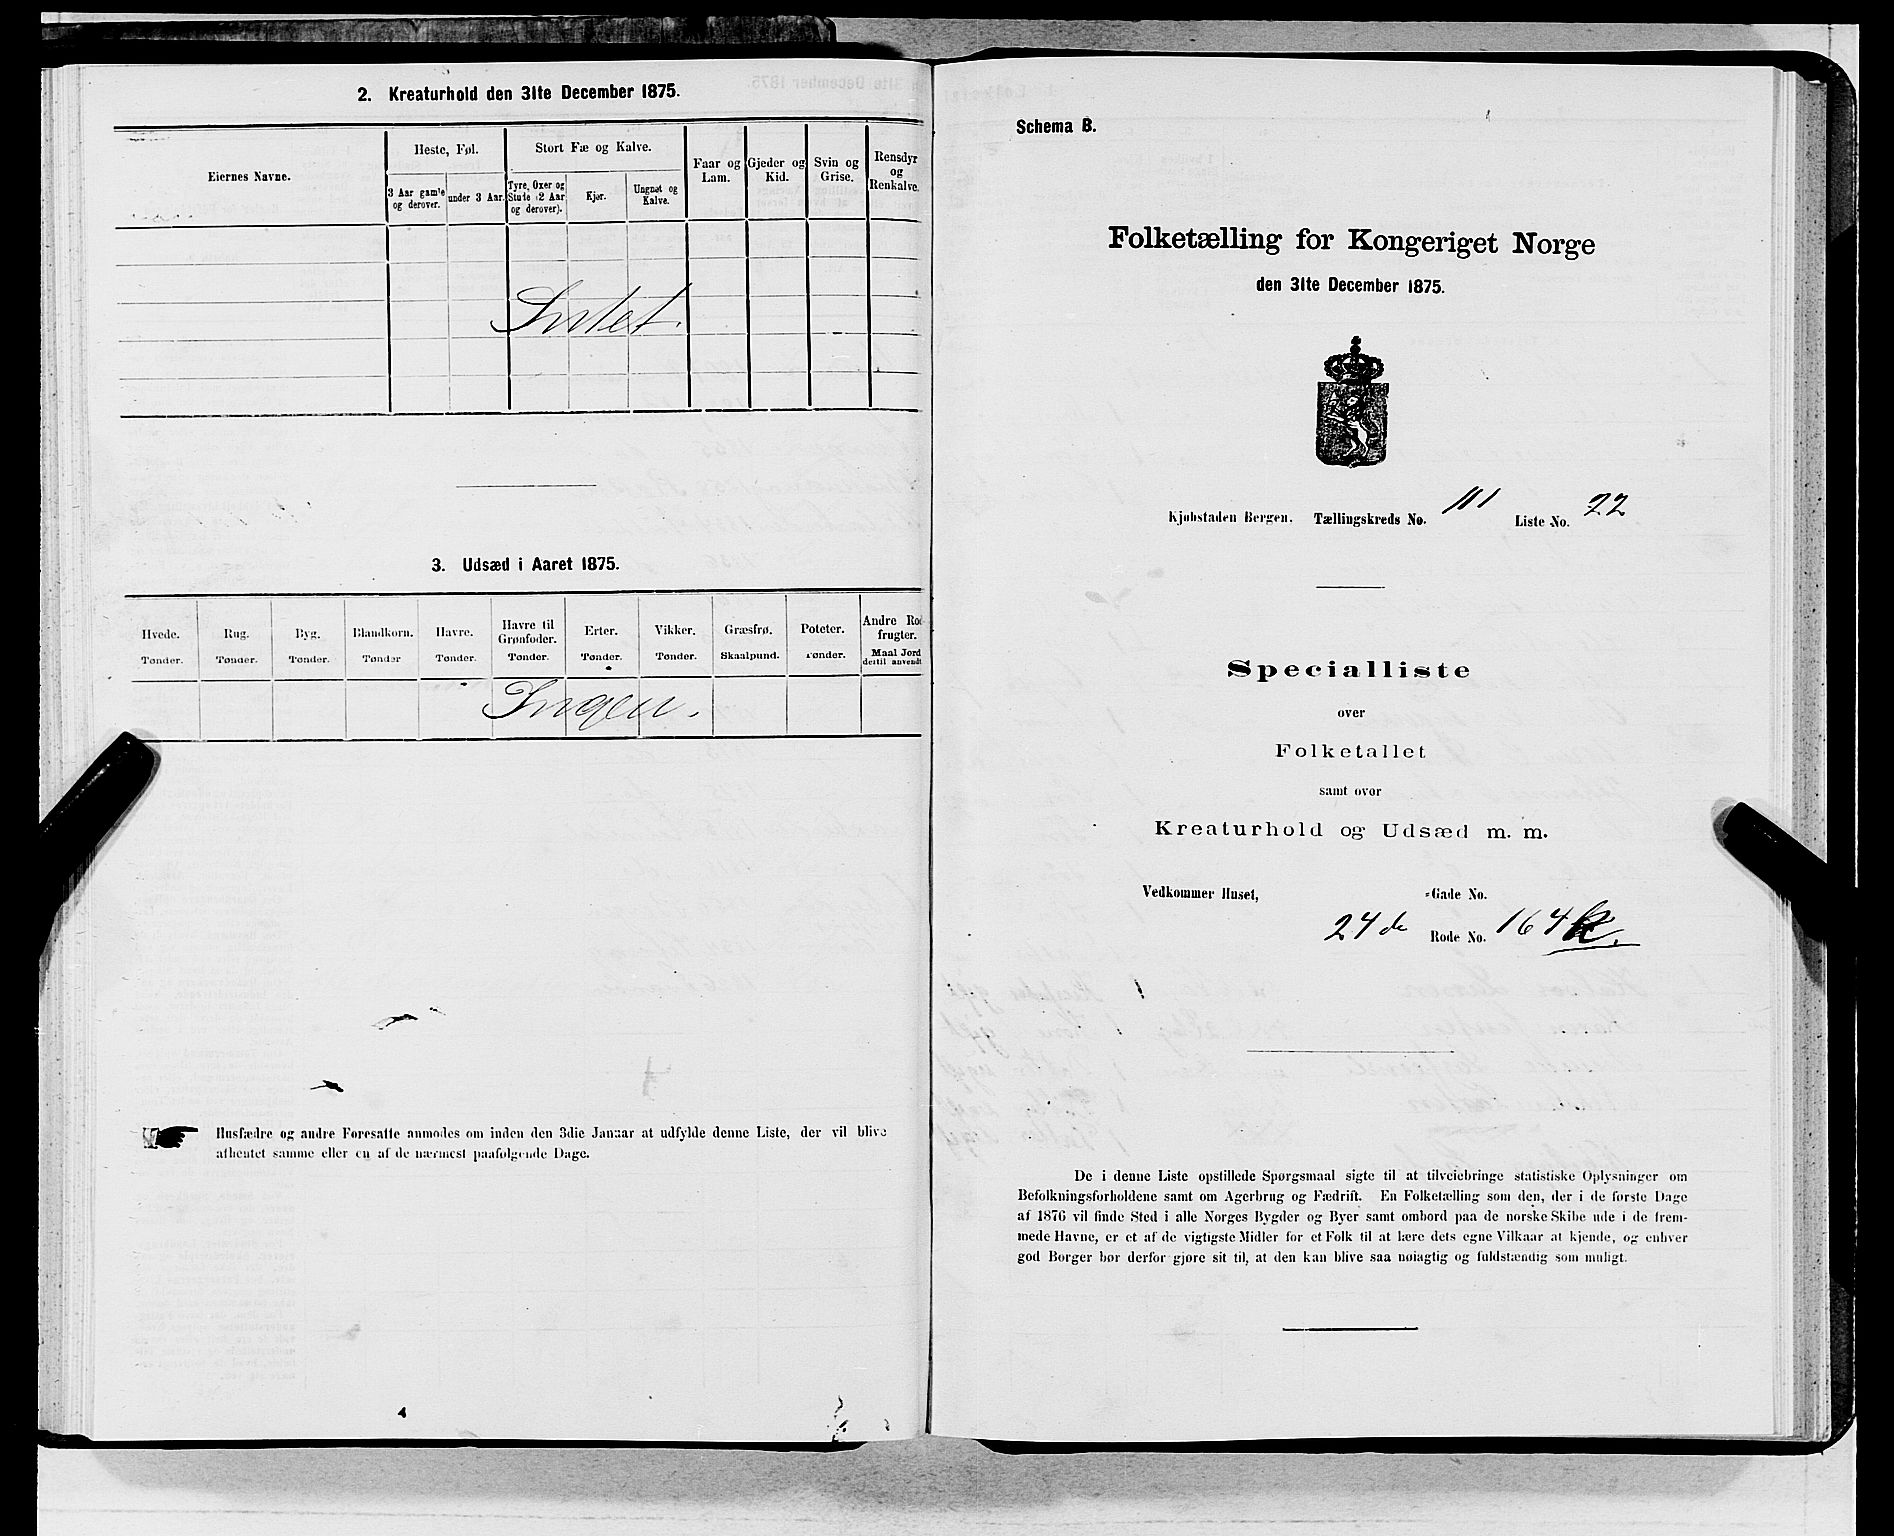 2. Kreaturhold den 31te December 1875.
Eiernes Navne.
Heste, Føl.
3 Aar gamle og derover.
under 3 Aar.
Stort Fæ og Kalve.
Tyre, Oxer og Stude (2 Aar og derover).
Kjør.
Ungnøt og Kalve.
Faar og Lam.
Gjeder og Kid.
Svin og Grise.
Rensdyr og Renkalve.
Intet.
3. Udsæd i Aaret 1875.
Hvede. Rug. Byg. Blandkorn. Havre. Havre til Grønfoder. Erter. Vikker. Græsfrø. Poteter. Andre Rodfrugter.
Tønder. Tønder. Tønder. Tønder Tønder. Tønder. Tønder. Tønder. Skaalpund. Tønder. Maal Jord dertil anvendt
Ingen.
Husfædre og andre Foresatte anmodes om inden den 3die Januar at udfylde denne Liste, der vil blive
afhentet samme eller en af de nærmest paafølgende Dage.
4
Schema B.
Folketælling for Kongeriget Norge
den 31te December 1875.
Kjøbstaden Bergen. Tællingskreds No. 111 Liste No. 22
Specialliste
over
Folketallet
samt over
Kreaturhold og Udsæd m. m.
Vedkommer Huset, -Gade No.
24de Rode No. 164k.
De i denne Liste opstillede Spørgsmaal sigte til at tilveiebringe statistiske Oplysninger om
Befolkningsforholdene samt om Agerbrug og Fædrift. En Folketælling som den, der i de første Dage
af 1876 vil finde Sted i alle Norges Bygder og Byer samt ombord paa de norske Skibe ude i de frem-
mede Havne, er et af de vigtigste Midler for et Folk til at lære dets egne Vilkaar at kjende, og enhver
god Borger bør derfor gjøre sit til, at den kan blive saa nøiagtig og fuldstændig som muligt.